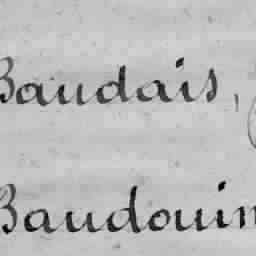 Baudais,
Baudouin